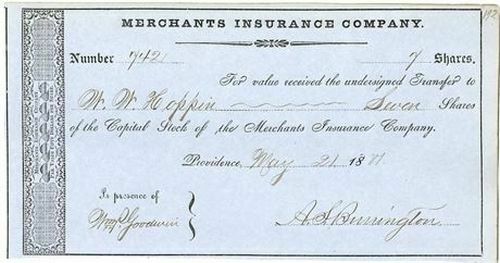 MERCHANTS INSURANCE COMPANY.
Number 742 7 Shares.
For value received the undersigned Transfer to
W. W. Hoppin Seven Shares
of the Capital Stock of the Merchants Insurance Company.
Providence, May 21 1877
In presence of
Wm P. Goodwin